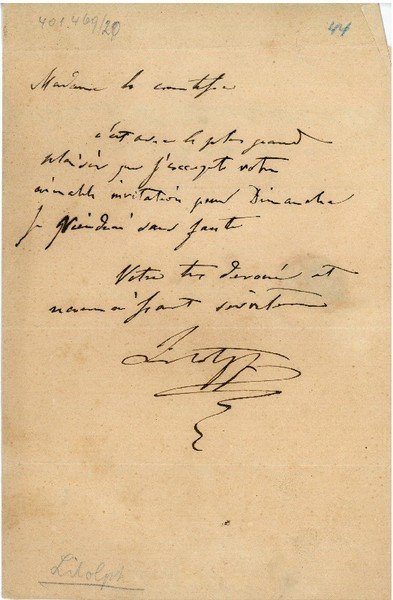 401.469/20
44
Madame la comtesse
c'est avec le plus grand
plaisir que j'accepte votre
aimable invitation pour Dimanche
je viendrai sans faute
Votre très devoué et
reconnaissant serviteur
Litolff
Litolph